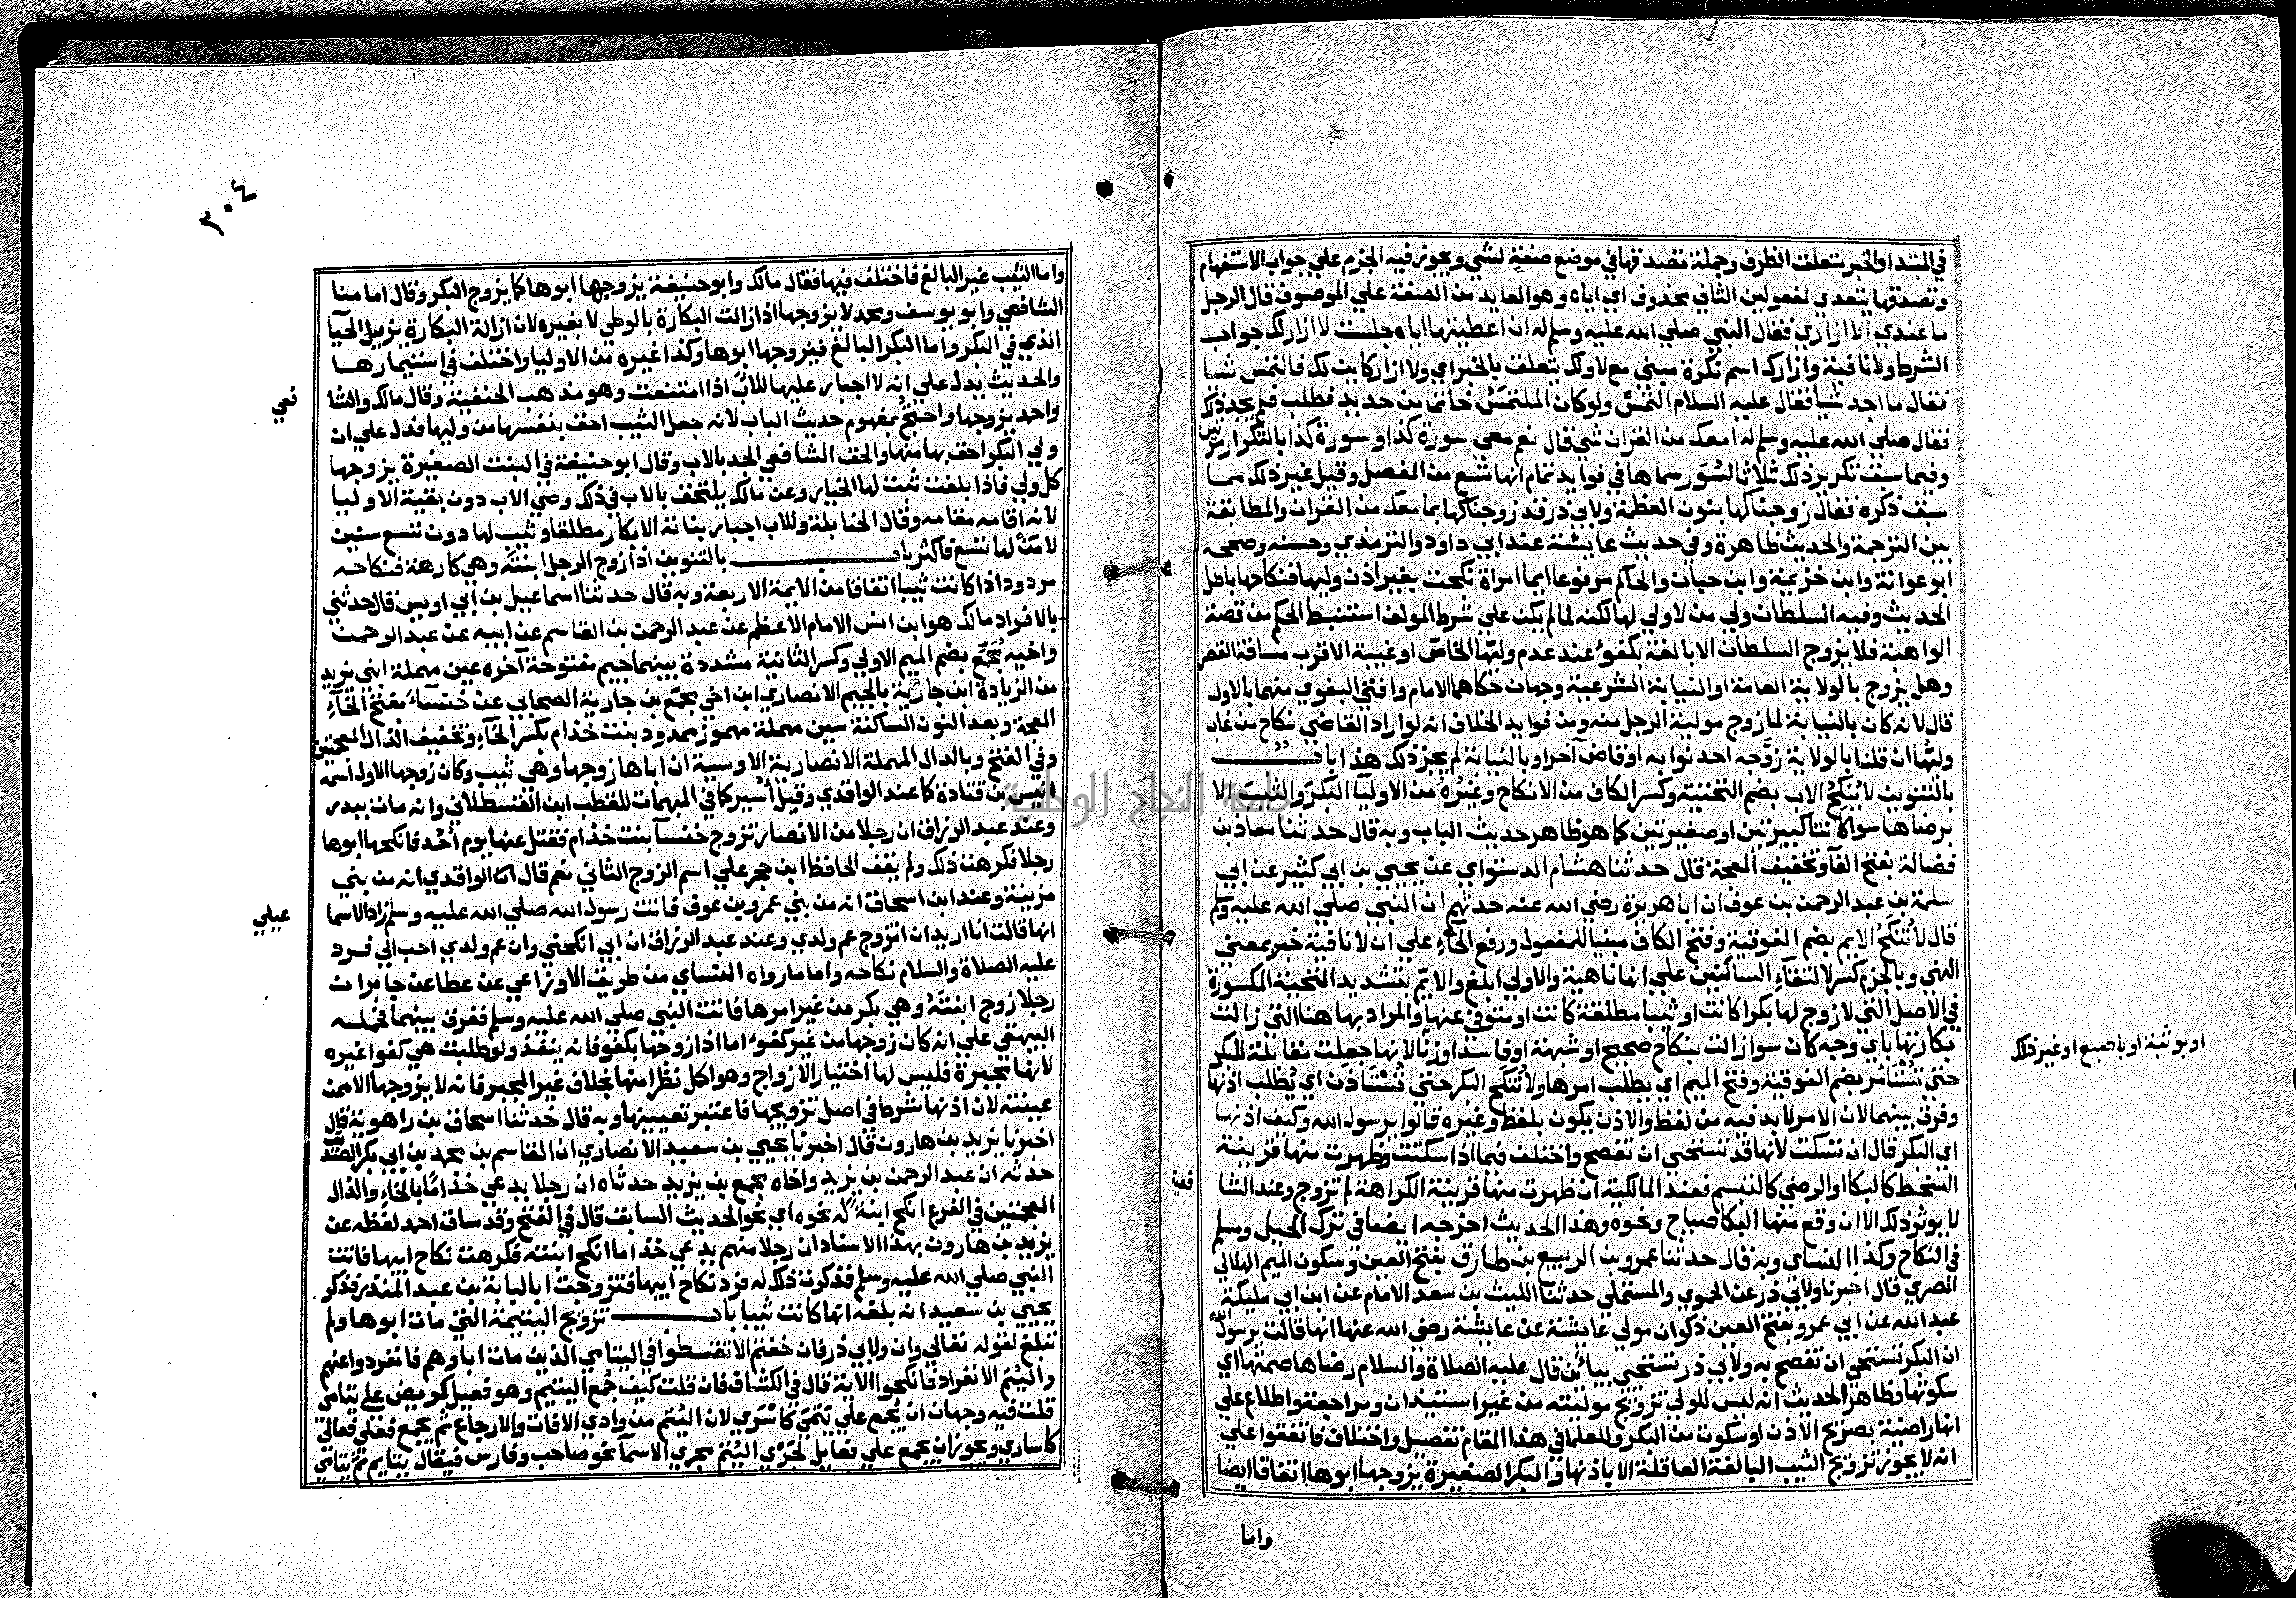 في المبتدا والخبر متعلق الظرف وجملة تصدقها في موضع صفة لشي ويجوز فيه الجزم علي جواب الاستفهام
وتصدقها يتعدي لمفعولين الثاني محذوف اي اياه وهو العايد من الصفة علي الموصوف قال الرجل
ما عندي الا ازاري فقال النبي صلي الله عليه وسلم له ان اعطيتها اياه جلست لا ازار لك جواب
الشرط ولا نافية وازارك اسم نكرة مبني مع لا ولك يتعلق بالخبر اي ولا ازار كاين لك فالتمس شيا
فقال ما اجد شيا فقال عليه السلام التمس ولو كان الملتمس خاتما من حديد فطلب فلم يجد ذلك
فقال صلي الله عليه وسلم له امعك من القران شي قال نعم معي سورة كذا وسورة كذا بالتكرار مرتين
وفيما سبق تكرير ذلك ثلاثا لسور سماها في فوايد تمام انها تسع من المفصل وقيل غير ذلك مما
سبق ذكره فقال زوجناكها بنون العظمة ولابي ذر قد زوجناكها بما معك من القران والمطابقة
بين الترجمة والحديث ظاهرة وفي حديث عايشة عند ابي داود والترمذي وحسنه وصححه
ابو عوانة وابن خزيمة وابن حبان والحاكم مرفوعا ايما امراة نكحت بغير اذن وليها فنكاحها باطل
الحديث وفيه السلطان ولي من لا ولي لها لكنه لما لم يكن علي شرط المولف استنبط الحكم من قصة
الواهبة فلا يزوج السلطان الا بالغة بكفوء عند عدم وليها الخاص او غيبة الاقرب مسافة القصر
وهل يزوج بالولاية العامة او النيابة الشرعية وجهان حكاهما الامام وافتي البغوي منهما بالاول
قال لانه كان بالنيابة لما زوج مولية الرجل منه ومن فوايد الخلاف انه لو اراد القاضي نكاح من غاب
وليها ان قلنا بالولاية زوجه احد نوابه او قاض آخر او بالنيابة لم يجز ذلك هذا باب
بالتنوين لا ينكح الاب بضم التحتية وكسر الكاف من الانكاح وغيره من الاوليا البكر والثيب الا
برضاها سوا كانتا كبيرتين او صغيرتين كما هو ظاهر حديث الباب وبه قال حدثنا معاذ بن
فضالة بفتح الفا وتخفيف المعجمة قال حدثنا هشام الدستواي عن يحيي بن ابي كثير عن ابي
سلمة بن عبد الرحمن بن عوف ان ابا هريرة رضي الله عنه حدثهم ان النبي صلي الله عليه وسلم
قال لا تنكح الايم بضم الفوقية وفتح الكاف مبنيا للمفعول ورفع الحاء علي ان لا نافية خبر بمعني
النهي وبالجزم كسر لالتقاء الساكنين علي انها ناهية والاولي ابلغ والايم بتشديد التحتية المكسورة
في الاصل التي لا زوج لها بكرا كانت او ثيبا مطلقة كانت او متوفي عنها والمراد بها هنا التي زالت
بكارتها باي وجه كان سوا زالت بنكاح صحيح او شبهة او فاسد او زنا لانها جعلت مقابلة للبكر
اوبوثبة او باصبع او غير ذلك
حتي تستامر بضم الفوقية وفتح الميم اي يطلب امرها ولا تنكح البكر حتي تستاذن اي يطلب اذنها
وفرق بينهما لان الامر لا بد فيه من لفظ والاذن يكون بلفظ وغيره قالوا يرسول الله وكيف اذنها
اي البكر قال ان تسكت لانها قد تستحيي ان تفصح واختلف فيما اذا سكتت وظهرت منها قرينة
السخط كالبكا او الرضي كالتبسم فعند المالكية ان ظهرت منها قرينة الكراهة لم تزوج وعند الشا
فعية
لا يوثر ذلك الا ان وقع منها البكا صياح ونحوه وهذا الحديث اخرجه ايضا في ترك الحيل ومسلم
في النكاح وكذا النساي وبه قال حدثنا عمرو بن الربيع بن طارق بفتح العين وسكون الميم الهلالي
المصري قال اخبرنا ولابي ذر عن الحموي والمستملي حدثنا الليث بن سعد الامام عن ابن ابي مليكة
عبد الله عن ابي عمرو بفتح العين ذكوان مولي عايشة عن عايشة رضي الله عنها انها قالت يرسول الله
ان البكر تستحي ان تفصح به ولابي ذر تستحيي بيائين قال عليه الصلاة والسلام رضاها صمتها اي
سكوتها وظاهر الحديث انه ليس للولي تزويج موليته من غير استيذان ومراجعة واطلاع علي
انها راضية بصريح الاذن او سكوت من البكر وللعلما في هذا المقام تفصيل واختلاف فاتفقوا علي
انه لا يجوز تزويج الثيب البالغة العاقلة الا باذنها والبكر الصغيرة يزوجها ابوها اتفاقا ايضا
واما
٣٠٤
واما الثيب غير البالغ فاختلف فيها فقال مالك وابو حنيفة يزوجها ابوها كما يزوج البكر وقال اما منا
الشافعي وابو يوسف ومحمد لا يزوجها اذا زالت البكارة بالوطي لا بغيره لان ازالة البكارة يزيل الحيا
الذي في البكر واما البكر البالغ فيزوجها ابوها وكذا غيره من الاوليا واختلف في استيمارها
والحديث يدل علي انه لا اجبار عليها للاب اذا امتنعت وهو مذهب الحنفية وقال مالك والشا
فعي
واحمد يزوجها واحتج بمفهوم حديث الباب لانه جعل الثيب احق بنفسها من وليها فدل علي ان
ولي البكر احق بها منها والحق الشافعي الجد بالاب وقال ابو حنيفة في البنت الصغيرة يزوجها
كل ولي فاذا بلغت ثبت لها الخيار وعن مالك يلتحق بالاب في ذلك وصي الاب دون بقية الاوليا
لانه اقامه مقامه وقال الحنابلة وللاب اجبار بناته الابكار مطلقا وثيب لها دون تسع سنين
لا من لها تسع فاكثر باب بالتنوين اذا زوج الرجل ابنته وهي كارهة فنكاحه
مردود اذا كانت ثيبا اتفاقا من الايمة الاربعة وبه قال حدثنا اسماعيل بن ابي اويس قال حدثني
بالافراد مالك هو ابن انس الامام الاعظم عن عبد الرحمن بن القاسم عن ابيه عن عبد الرحمن
واخيه مجمع بضم الميم الاولي وكسر الثانية مشددة بينهما جيم مفتوحة آخره عين مهملة ابني يزيد
من الزيادة ابن جارية بالجيم الانصاري ابن اخي مجمع بن جارية الصحابي عن خنساء بفتح الخاء
المعجمة وبعد النون الساكنة سين مهملة مهموز ممدود بنت خذام بكسر الخاء وتخفيف الذال المعجمتين
وفي الفتح وبالدال المهملة الانصارية الاوسية ان اباها زوجها وهي ثيب وكان زوجها الاول اسمه
انيس بن قتادة كما عند الواقدي وقيل أسير كما في المبهمات للقطب ابن القسطلاني وانه مات ببدر
وعند عبد الرزاق ان رجلا من الانصار تزوج خنسا بنت خذام فقتل عنها يوم أحد فانكحها ابوها
رجلا فكرهت ذلك ولم يقف الحافظ ابن حجر علي اسم الزوج الثاني نعم قال ان الواقدي انه من بني
مزينة وعند ابن اسحاق انه من بني عمرو بن عوف فاتت رسول الله صلي الله عليه وسلم زاد الاسما
عيلي
انها قالت انا اريد ان اتزوج عم ولدي وعند عبد الرزاق ان ابي انكحني وان عم ولدي احب الي فرد
عليه الصلاة والسلام نكاحه واما ما رواه النساي من طريق الاوزاعي عن عطا عن جابر ان
رجلا زوج ابنته وهي بكر من غير امرها فاتت النبي صلي الله عليه وسلم ففرق بينهما فحمله
البيهقي علي انه كان زوجها من غير كفوء اما اذا زوجها بكفو فانه ينفذ ولو طلبت هي كفوا غيره
لانها مجبرة فليس لها اختيار الازواج وهو اكمل نظرا منها بخلاف غير المجبر فانه لا يزوجها الا ممن
عينته لان اذنها شرط في اصل تزويجها فاعتبر تعيينها وبه قال حدثنا اسحاق بن راهوية قال
اخبرنا يزيد بن هارون قال اخبرنا يحيي بن سعيد الانصاري ان القاسم بن محمد بن ابي بكر الصديق
حدثه ان عبد الرحمن بن يزيد واخاه مجمع بن يزيد حدثاه ان رجلا يدعي خذاما بالخاء والذال
المعجمتين في الفرع انكح ابنة له نحوه اي نحو الحديث السابق قال في الفتح وقد ساق احمد لفظه عن
يزيد بن هارون بهذا الاسناد ان رجلا منهم يدعي خذاما انكح ابنته فكرهت نكاح ابيها فاتت
النبي صلي الله عليه وسلم فذكرت ذلك له فرد نكاح ابيها فتزوجت ابا لبابة بن عبد المنذر فذكر
يحيي بن سعيد انه بلغه انها كانت ثيبا باب تزويج اليتيمة التي مات ابوها ولم
تبلغ لقوله تعالي وان ولابي ذر فان خفتم الا تقسطوا في اليتامي الذين مات اباوهم فانفردوا عنهم
واليتم الانفراد فانكحوا الاية قال في الكشاف فان قلت كيف جمع اليتيم وهو فعيل كمريض علي يتامي
قلت فيه وجهان ان يجمع علي يتمي كاسري لان اليتم من وادي الافات والاوجاع ثم يجمع فعلي فعالي
كاساري ويجوز ان يجمع علي فعايل لجري اليتم مجري الاسما نحو صاحب وفارس فيقال يتايم ثم يتامي
جامعة النجاح الوطنية